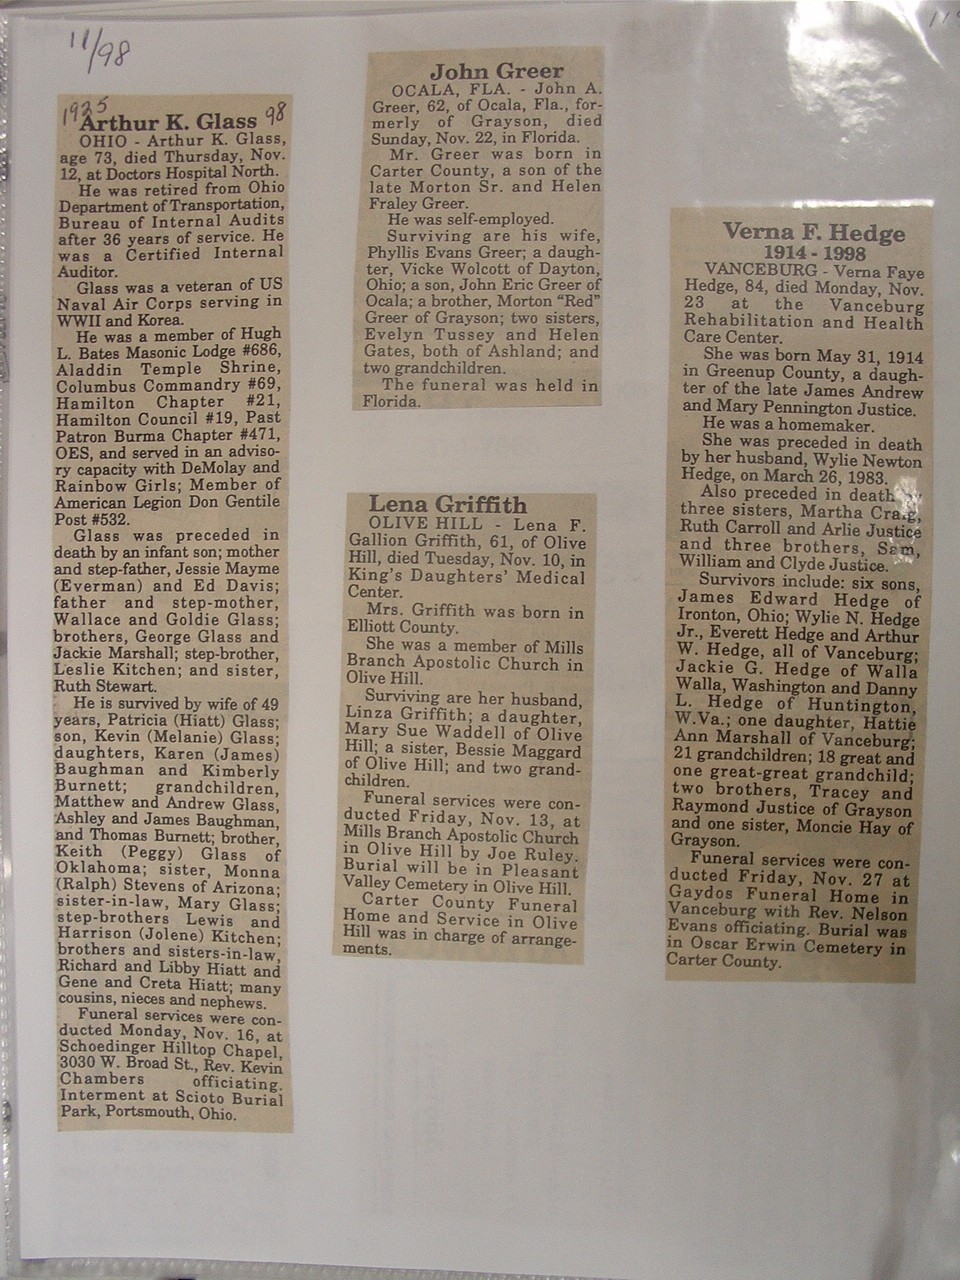 11/98
1925 98
Arthur K. Glass
OHIO - Arthur K. Glass,
age 73, died Thursday, Nov.
12, at Doctors Hospital North.
He was retired from Ohio
Department of Transportation,
Bureau of Internal Audits
after 36 years of service. He
was a Certified Internal
Auditor.
Glass was a veteran of US
Naval Air Corps serving in
WWII and Korea.
He was a member of Hugh
L. Bates Masonic Lodge #686,
Aladdin Temple Shrine,
Columbus Commandry #69,
Hamilton Chapter #21,
Hamilton Council #19, Past
Patron Burma Chapter #471,
OES, and served in an adviso-
ry capacity with DeMolay and
Rainbow Girls; Member of
American Legion Don Gentile
Post #532.
Glass was preceded in
death by an infant son; mother
and step-father, Jessie Mayme
(Everman) and Ed Davis;
father and step-mother,
Wallace and Goldie Glass;
brothers, George Glass and
Jackie Marshall; step-brother,
Leslie Kitchen; and sister,
Ruth Stewart.
He is survived by wife of 49
years, Patricia (Hiatt) Glass;
son, Kevin (Melanie) Glass;
daughters, Karen (James)
Baughman and Kimberly
Burnett; grandchildren,
Matthew and Andrew Glass,
Ashley and James Baughman,
and Thomas Burnett; brother,
Keith (Peggy) Glass of
Oklahoma; sister, Monna
(Ralph) Stevens of Arizona;
sister-in-law, Mary Glass;
step-brothers Lewis and
Harrison (Jolene) Kitchen;
brothers and sisters-in-law,
Richard and Libby Hiatt and
Gene and Creta Hiatt; many
cousins, nieces and nephews.
Funeral services were con-
ducted Monday, Nov. 16, at
Schoedinger Hilltop Chapel,
3030 W. Broad St., Rev. Kevin
Chambers officiating.
Interment at Scioto Burial
Park, Portsmouth, Ohio.
John Greer
OCALA, FLA. - John A.
Greer, 62, of Ocala, Fla., for-
merly of Grayson, died
Sunday, Nov. 22, in Florida.
Mr. Greer was born in
Carter County, a son of the
late Morton Sr. and Helen
Fraley Greer.
He was self-employed.
Surviving are his wife,
Phyllis Evans Greer; a daugh-
ter, Vicke Wolcott of Dayton,
Ohio; a son, John Eric Greer of
Ocala; a brother, Morton "Red"
Greer of Grayson; two sisters,
Evelyn Tussey and Helen
Gates, both of Ashland; and
two grandchildren.
The funeral was held in
Florida.
Lena Griffith
OLIVE HILL - Lena F.
Gallion Griffith, 61, of Olive
Hill, died Tuesday, Nov. 10, in
King's Daughters' Medical
Center.
Mrs. Griffith was born in
Elliott County.
She was a member of Mills
Branch Apostolic Church in
Olive Hill.
Surviving are her husband,
Linza Griffith; a daughter,
Mary Sue Waddell of Olive
Hill; a sister, Bessie Maggard
of Olive Hill; and two grand-
children.
Funeral services were con-
ducted Friday, Nov. 13, at
Mills Branch Apostolic Church
in Olive Hill by Joe Ruley.
Burial will be in Pleasant
Valley Cemetery in Olive Hill.
Carter County Funeral
Home and Service in Olive
Hill was in charge of arrange-
ments.
Verna F. Hedge
1914 - 1998
VANCEBURG - Verna Faye
Hedge, 84, died Monday, Nov.
23 at the Vanceburg
Rehabilitation and Health
Care Center.
She was born May 31, 1914
in Greenup County, a daugh-
ter of the late James Andrew
and Mary Pennington Justice.
He was a homemaker.
She was preceded in death
by her husband, Wylie Newton
Hedge, on March 26, 1983.
Also preceded in death by
three sisters, Martha Craig,
Ruth Carroll and Arlie Justice
and three brothers, Sam,
William and Clyde Justice.
Survivors include: six sons,
James Edward Hedge of
Ironton, Ohio; Wylie N. Hedge
Jr., Everett Hedge and Arthur
W. Hedge, all of Vanceburg;
Jackie G. Hedge of Walla
Walla, Washington and Danny
L. Hedge of Huntington,
W.Va.; one daughter, Hattie
Ann Marshall of Vanceburg;
21 grandchildren; 18 great and
one great-great grandchild;
two brothers, Tracey and
Raymond Justice of Grayson
and one sister, Moncie Hay of
Grayson.
Funeral services were con-
ducted Friday, Nov. 27 at
Gaydos Funeral Home in
Vanceburg with Rev. Nelson
Evans officiating. Burial was
in Oscar Erwin Cemetery in
Carter County.